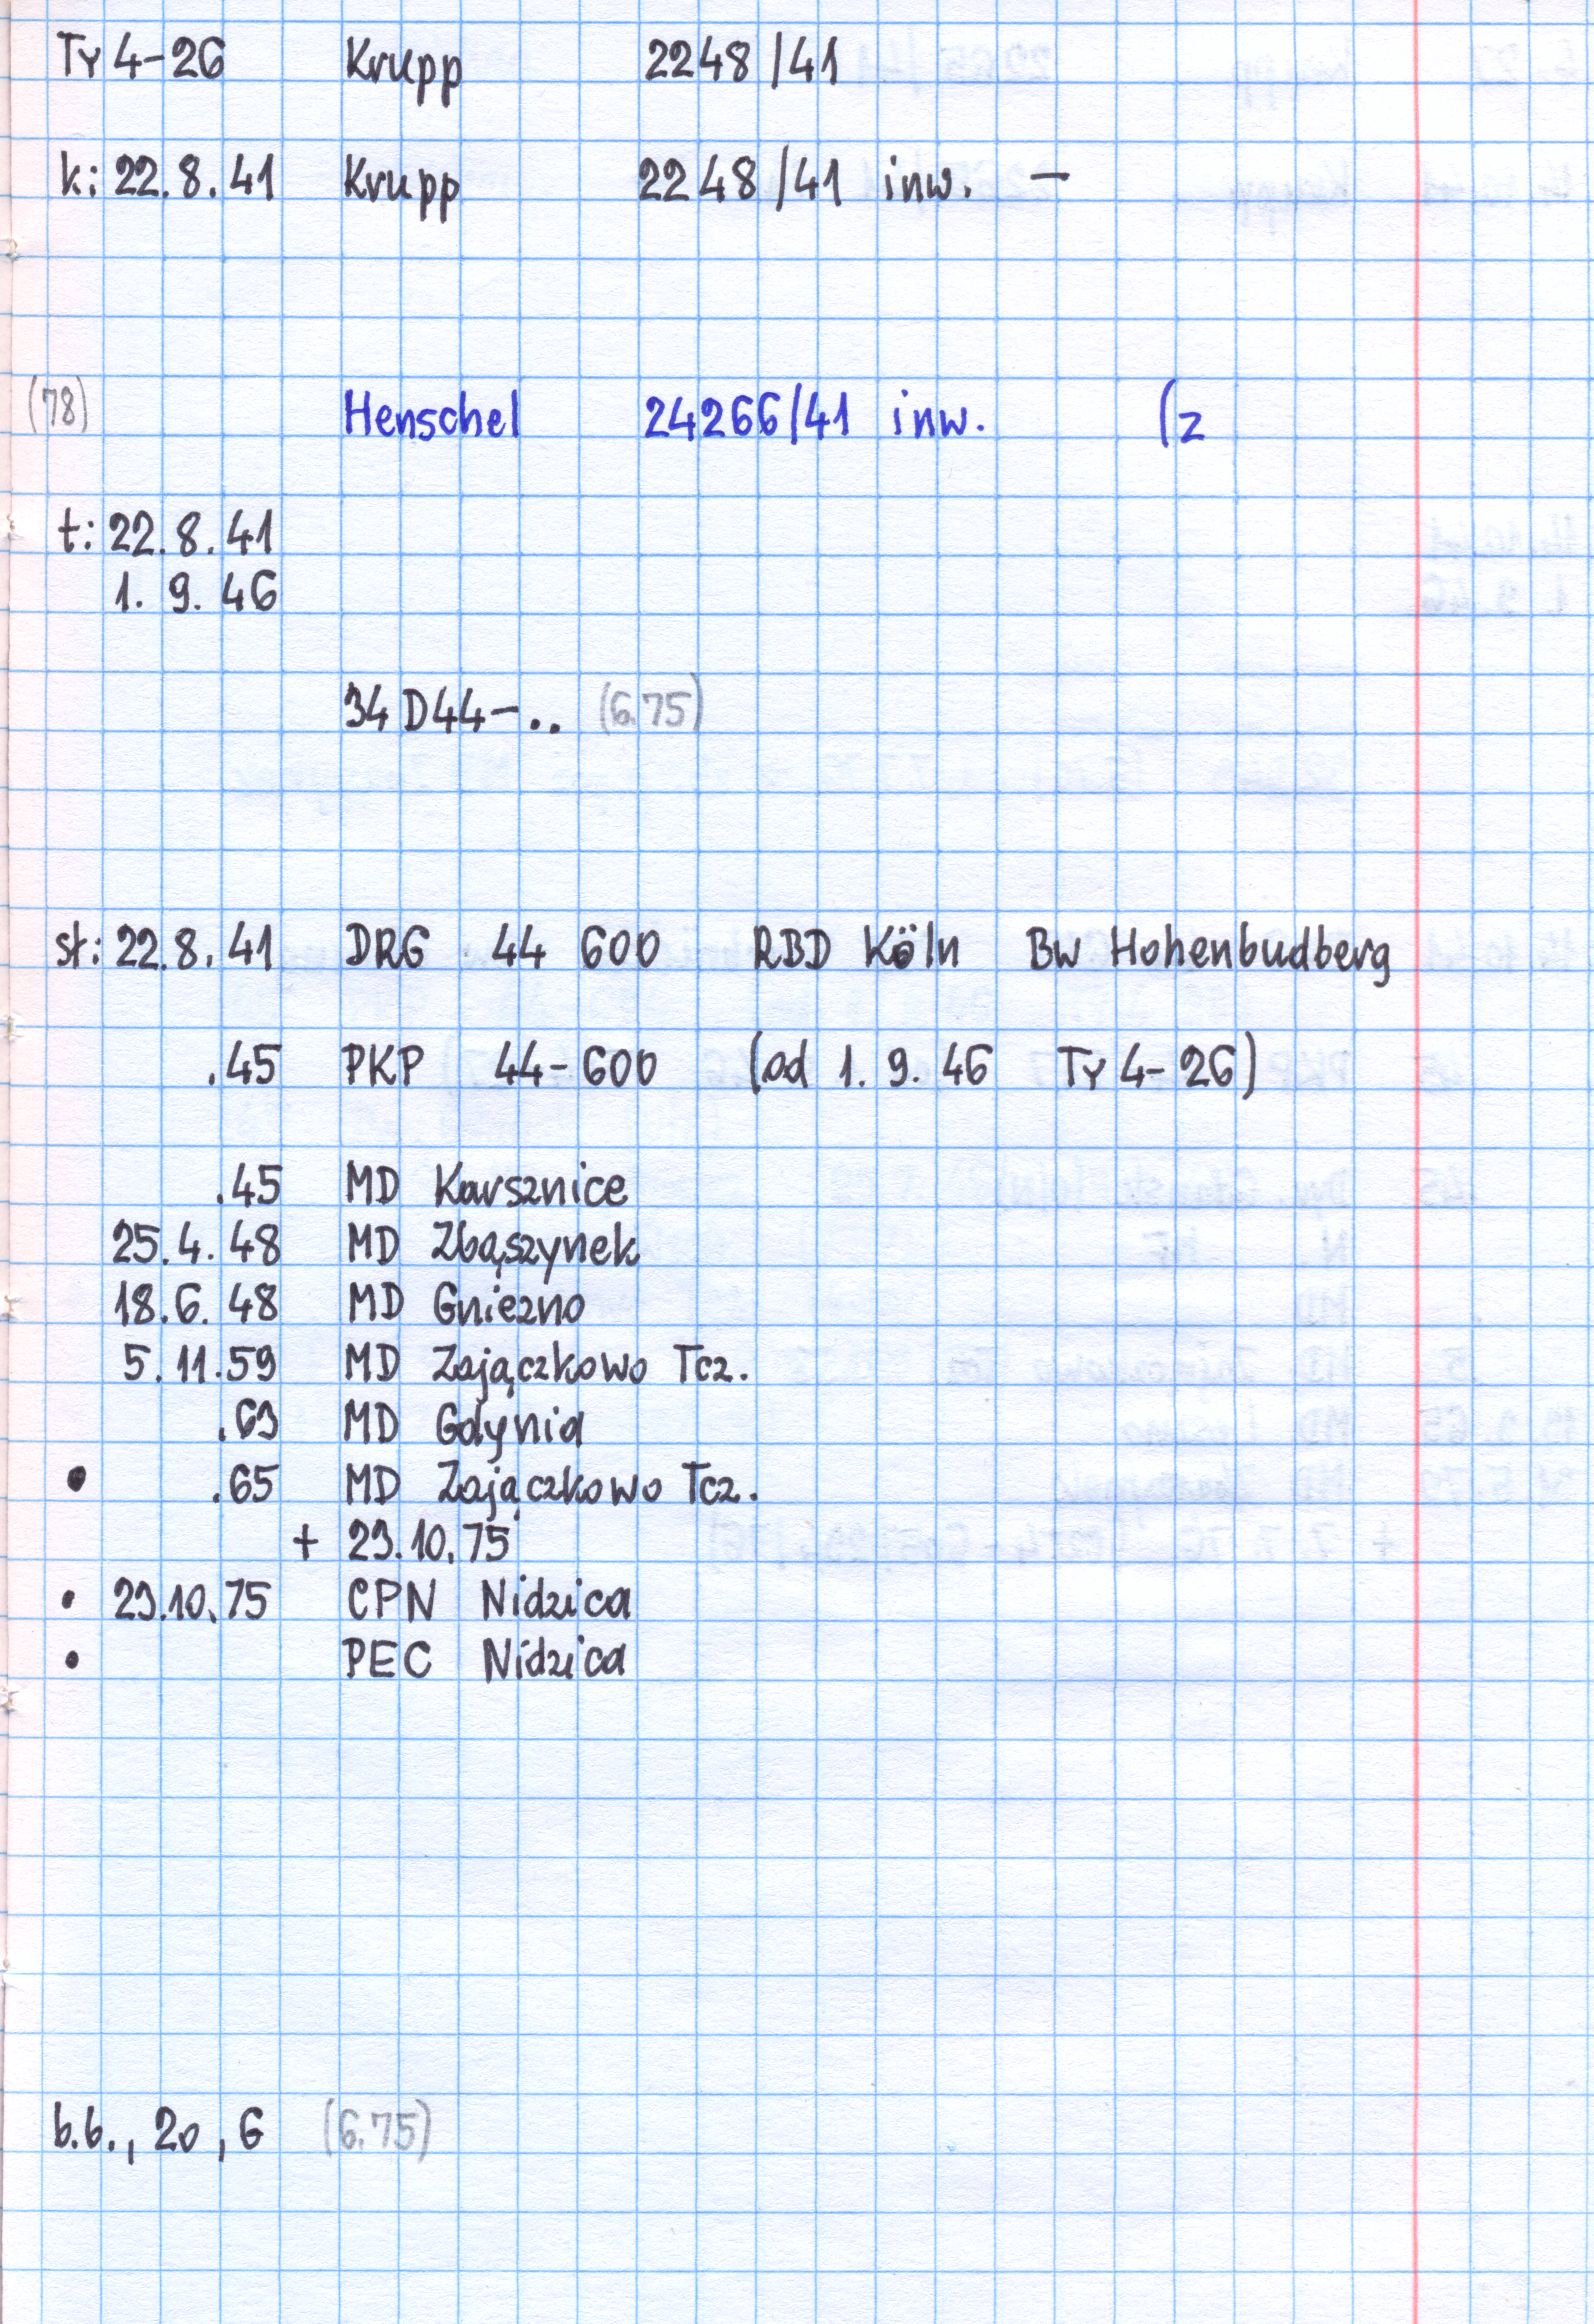 Ty 4-26 Krupp 2248/41
k: 22.8.41 Krupp 2248/41 inw. -
(78) Henschel 24266/41 inw. (z
t: 22.8.41
1. 9. 46
34D44-.. (6.75)
st: 22.8.41 DRG 44 600 RBD Köln Bw Hohenbudberg
.45 PKP 44-600 (od 1. 9. 46 Ty 4-26)
.45 MD Karsznice
25.4.48 MD Zbąszynek
18.6.48 MD Gniezno
5.11.59 MD Zajączkowo Tcz.
.63 MD Gdynia
• .65 MD Zajączkowo Tcz.
+ 29.10.75
• 29.10.75 CPN Nidzica
• PEC Nidzica
b.b., 20, 6 (6.75)